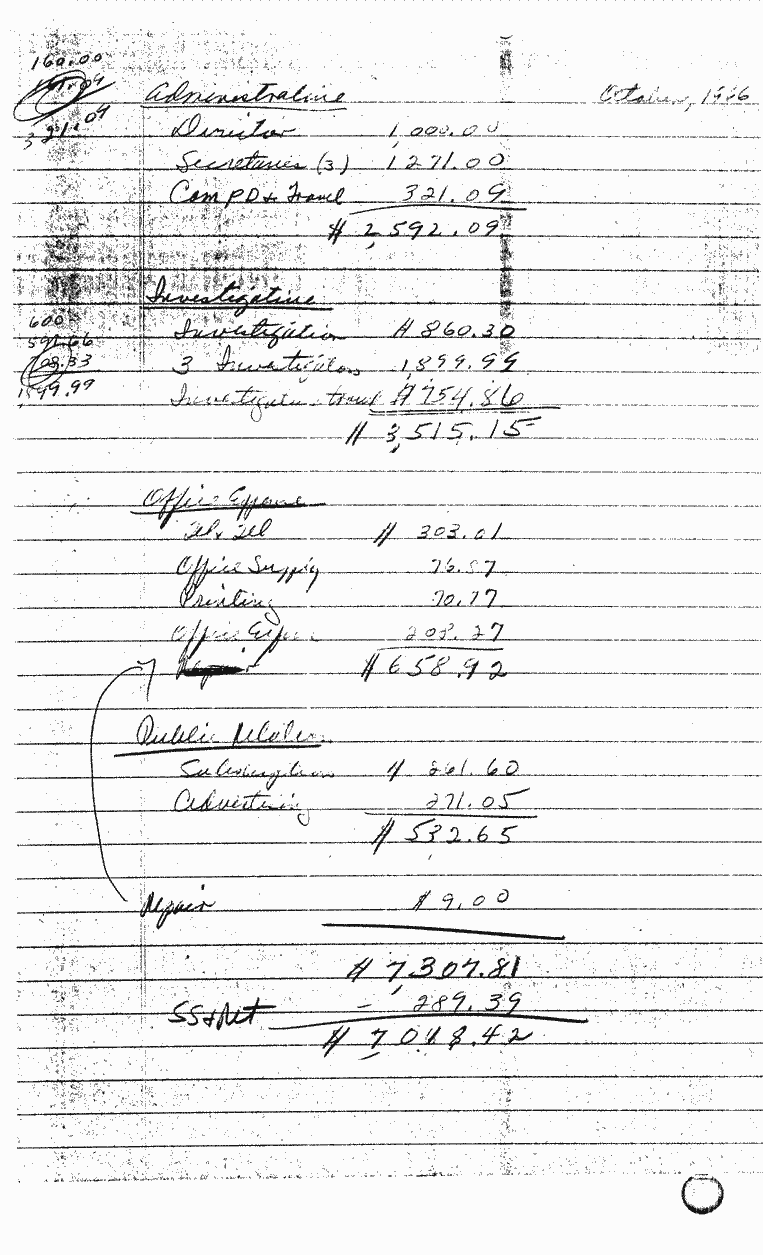 160.00
October, 1966
Administrative
321.09
Director 1,000.00
Secretaries (3) 1271.00
Com PD & Travel 321.09
$ 2,592.09
Investigative
600
Investigation $ 860.30
591.66
3 Investigators 1,899.99
708.33
1899.99
Investigators travel $ 754.86
$ 3,515.15
Office Expense
Tel & Tel $ 303.01
Office Supply 76.87
Printing 70.77
Office Expen 208.27
$ 658.92
Public Relation
Subscriptions $ 261.60
Advertising 271.05
$ 532.65
Repair $ 9.00
$ 7,307.81
SS & Ret - 289.39
$ 7,018.42